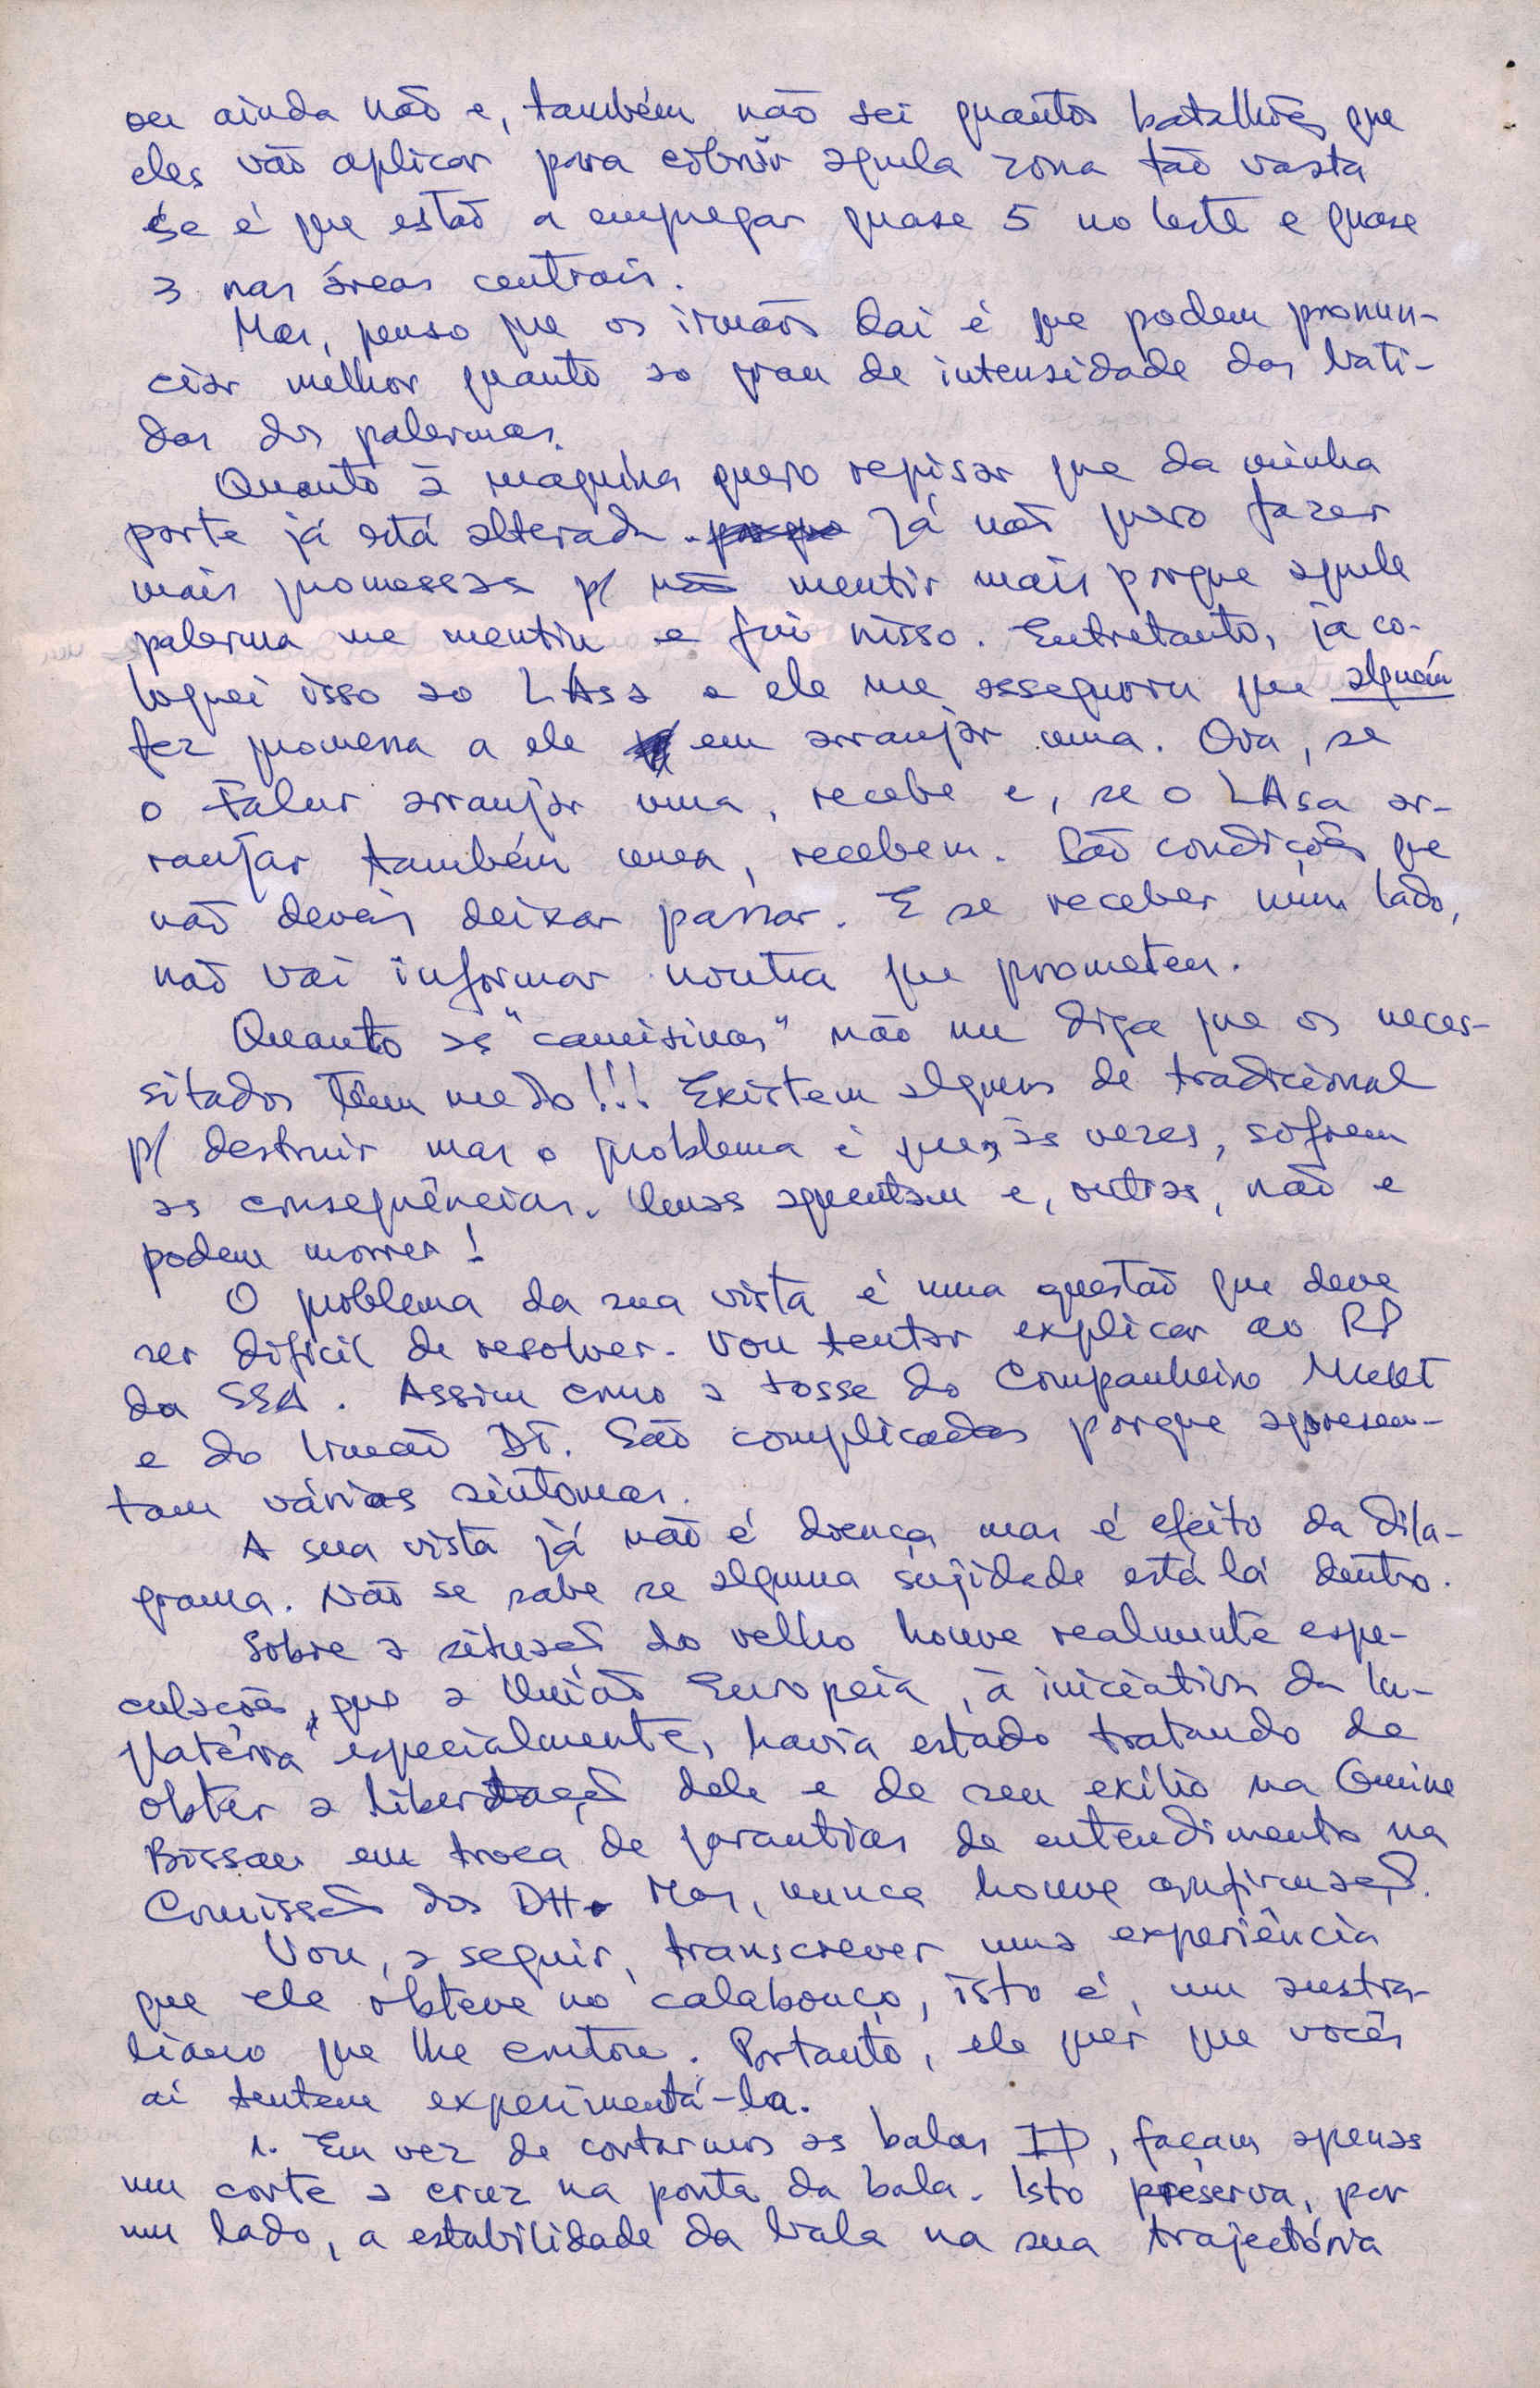 ou ainda não e, também não sei quantos batalhões que
eles vão aplicar para cobrir aquela zona tão vasta
se é que estão a empregar quase 5 no leste e quase
3 nas áreas centrais.
Mas, penso que os irmãos daí é que podem pronun-
ciar melhor quanto ao grau de intensidade das bati-
das dos palermas.
Quanto à maquina quero repisar que da minha
parte já está alterada. porque Já não quero fazer
mais promessas p/ não mentir mais porque aquele
palerma me mentiu e fui nisso. Entretanto, já co-
loquei isso ao LAsa e ele me assegurou que alguém
fez promessa a ele em arranjar uma. Ora, se
o Talur arranjar uma, recebe e, se o LAsa ar-
ranjar também uma, recebem. São condições que
não deveis deixar passar. E se receber num lado,
não vai informar noutra que prometeu.
Quanto às "camisinas" não me diga que os neces-
sitados têm medo!!! Existem alguns de tradicional
p/ destruir mas o problema é que, às vezes, sofrem
as consequências. Umas aguentam e, outras, não e
podem morrer!
O problema da sua vista é uma questão que deve
ser difícil de resolver. Vou tentar explicar ao RP
da SSA. Assim como a tosse do Companheiro
e do Irmão DT. São complicadas porque apresen-
tam várias sintomas.
A sua vista já não é doença mas é efeito da dila-
grama. Não se sabe se alguma sujidade está lá dentro.
Sobre a situação do velho houve realmente espe-
culações, que a União Europeia, à iniciativa da In-
glaterra especialmente, havia estado tratando de
obter a libertação dele e de seu exílio na Guine
Bissau em troca de garantias de entendimento na
Comissão dos DH. Mas, nunca houve confirmação.
Vou, a seguir, transcrever uma experiência
que ele obteve no calabouço, isto é, um austra-
liano que lhe contou. Portanto, ele quer que vocês
aí tentem experimentá-la.
1. Em vez de cortarmos as balas, façam apenas
um corte a cruz na ponta da bala. Isto preserva, por
um lado, a estabilidade da bala na sua trajectória